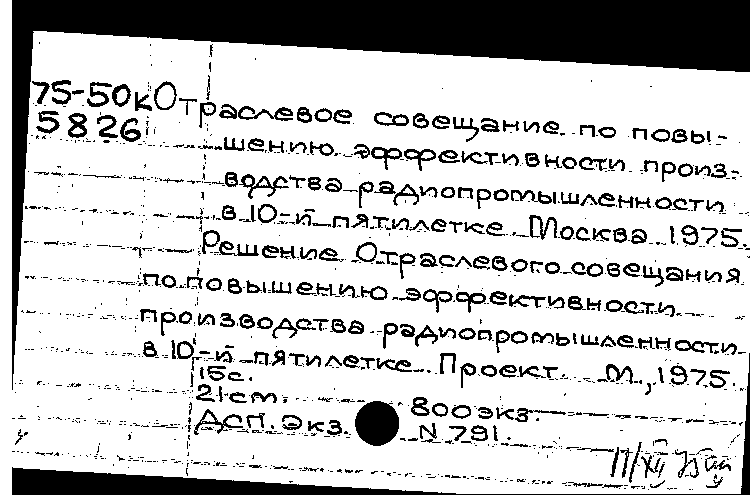 75-50к Отраслевое совещание по повы-
5826
шению эффективности произ-
водства радиопромышленности
в 10-й пятилетке. Москва. 1975.
Решение Отраслевого совещания
по повышению эффективности
производства радиопромышленности
в 10-й пятилетке. Проект. М., 1975.
15с.
21 cm. 800 экз.
ДСП. Экз. N 791.
11/XII 75